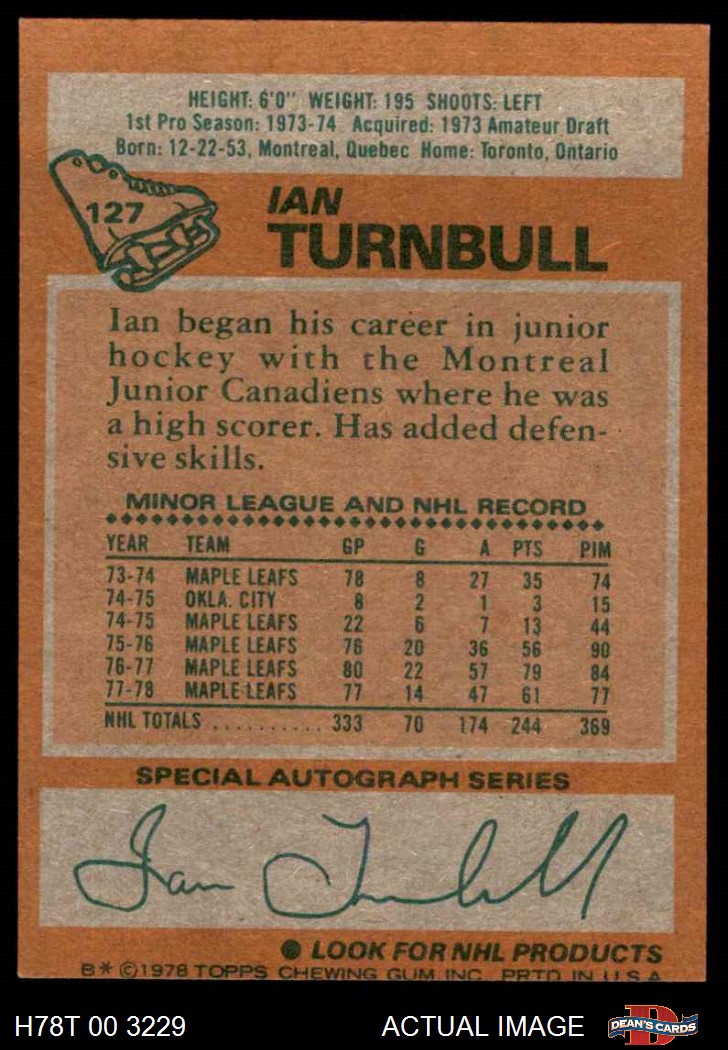 HEIGHT: 6'0" WEIGHT: 195 SHOOTS: LEFT
1st Pro Season: 1973-74 Acquired: 1973 Amateur Draft
Born: 12-22-53, Montreal, Quebec Home: Toronto, Ontario
127
IAN
TURNBULL
Ian began his career in junior
hockey with the Montreal
Junior Canadiens where he was
a high scorer. Has added defen-
sive skills.
MINOR LEAGUE AND NHL RECORD
YEAR TEAM GP G A PTS PIM
73-74 MAPLE LEAFS 78 8 27 35 74
74-75 OKLA. CITY 8 2 1 3 15
74-75 MAPLE LEAFS 22 6 7 13 44
75-76 MAPLE LEAFS 76 20 36 56 90
76-77 MAPLE LEAFS 80 22 57 79 84
77-78 MAPLE LEAFS 77 14 47 61 77
NHL TOTALS .......... 333 70 174 244 369
SPECIAL AUTOGRAPH SERIES
Ian Turnbull
● LOOK FOR NHL PRODUCTS
B* ©1978 TOPPS CHEWING GUM INC. PRTD IN U S A
H78T 00 3229 ACTUAL IMAGE DEAN'S CARDS